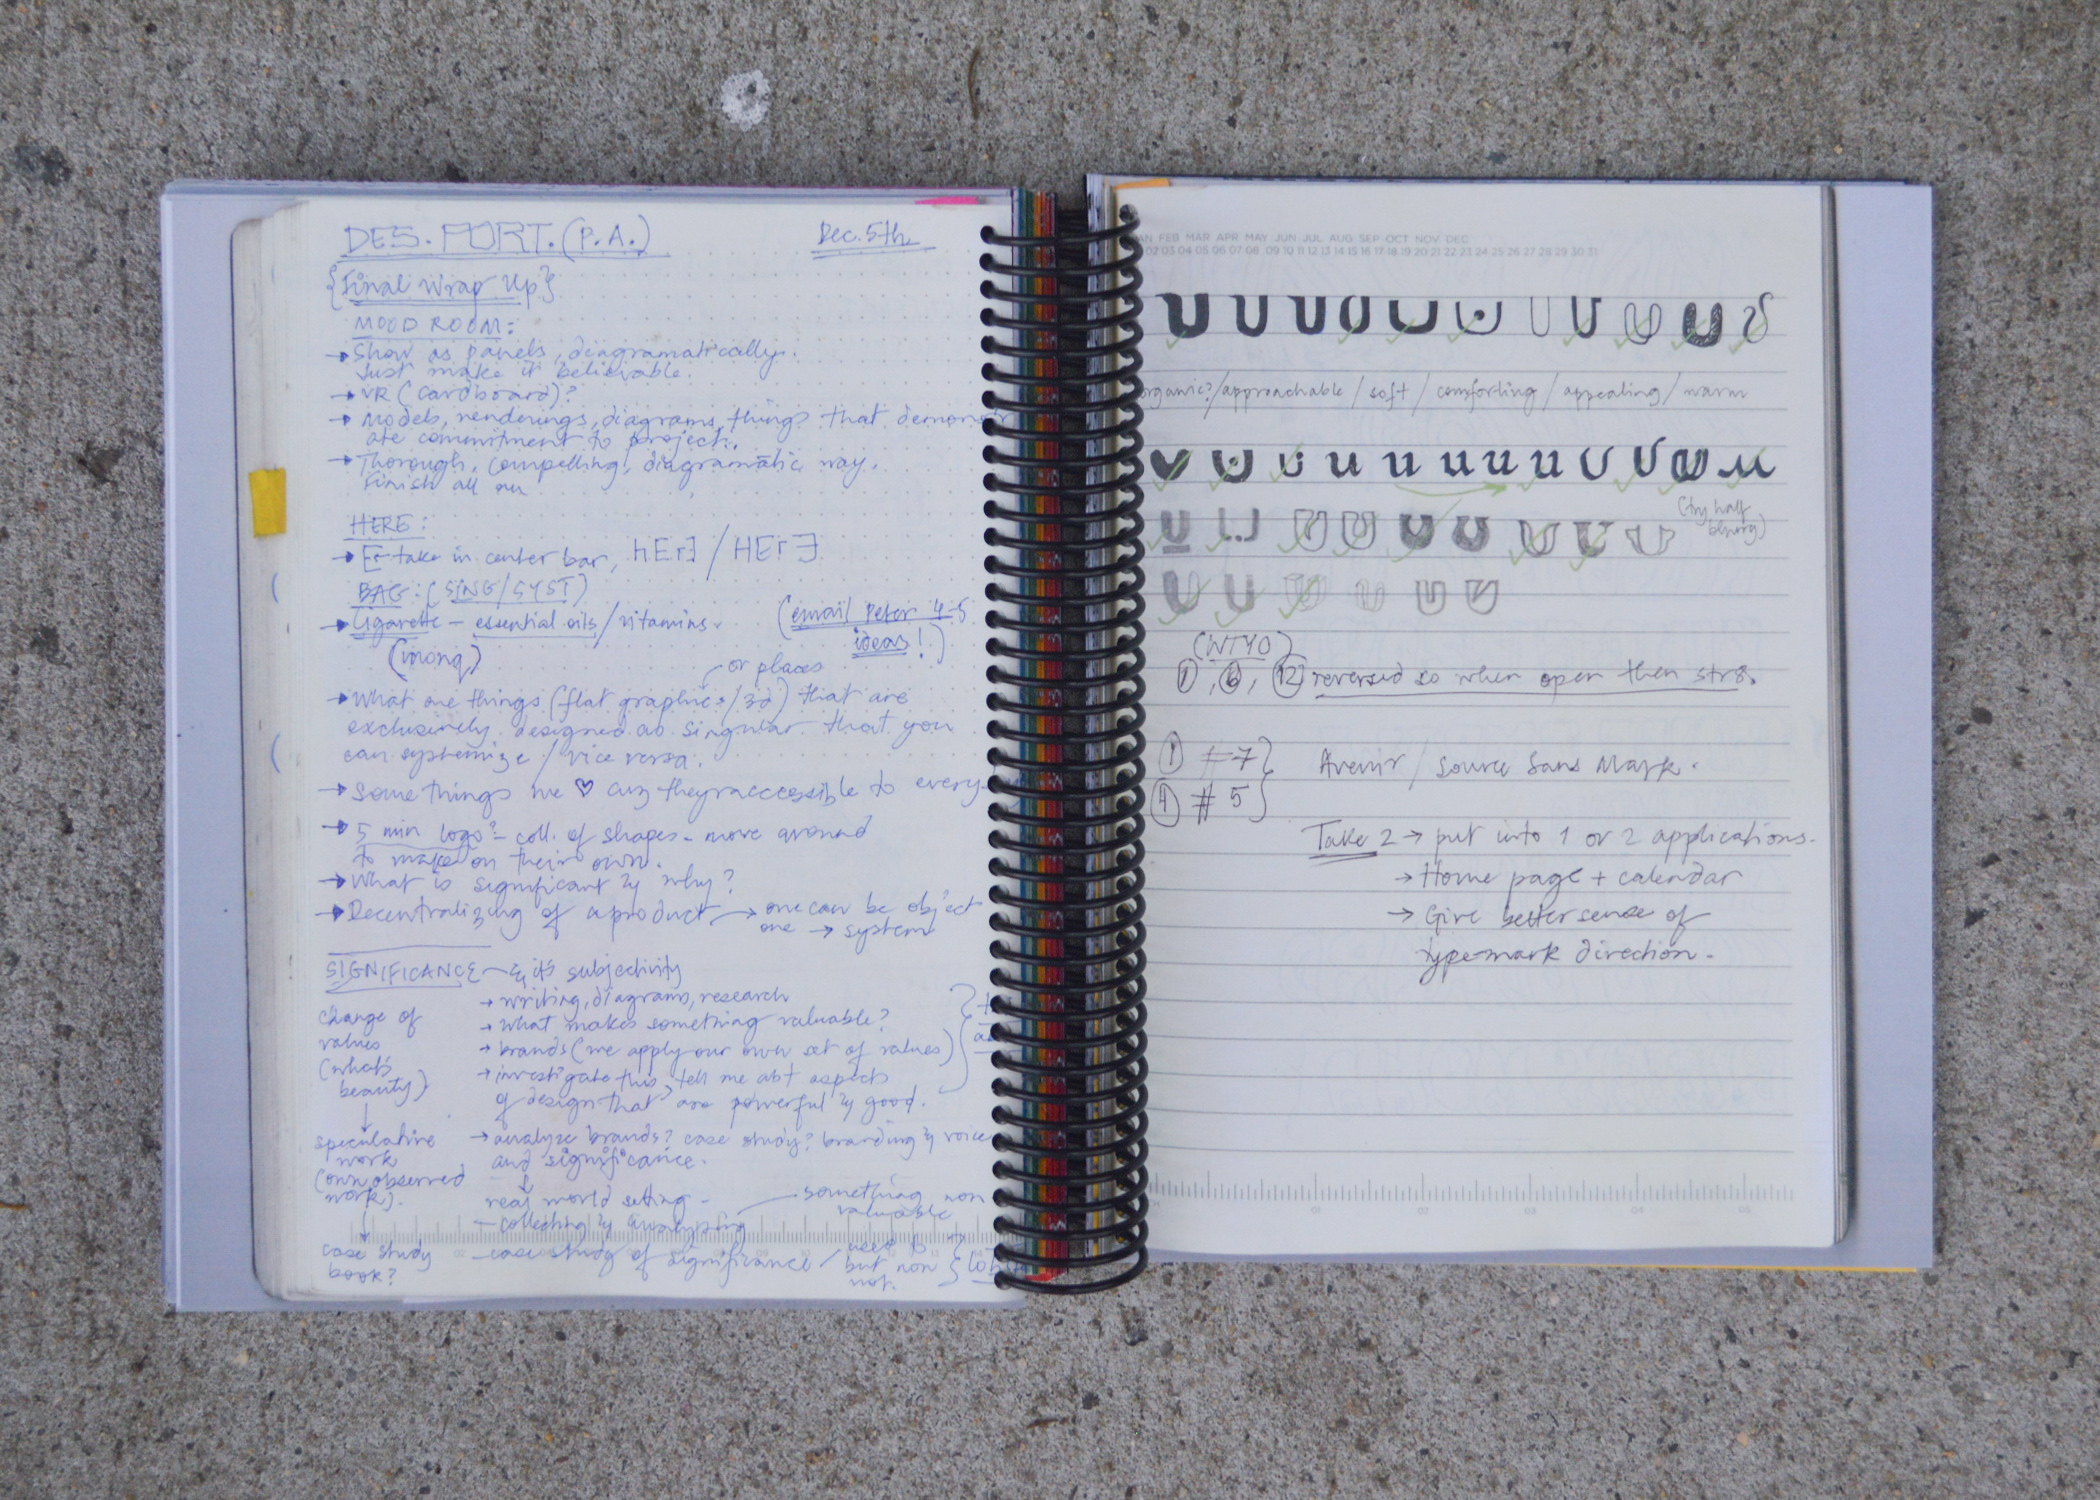 DES. PORT. (P.A.)
Dec. 5th
{Final Wrap Up}
MOOD ROOM:
→ Show as panels, diagramatically.
Just make it believable.
→ VR (cardboard)?
→ Models, renderings, diagrams, things that demonstr
ate commitment to project.
→ Thorough, compelling, diagramatic way.
Finish all
HERE:
→ E take in center bar, hErE / HErE
BAG: (SING/SYST)
→ Cigarette – essential oils/vitamins.
(email Peter 4-5
ideas!)
(wrong)
or places
→ What are things (flat graphics/3d) that are
exclusively designed as singular that you
can systemize / vice versa.
→ some things we ♡ cuz they're accessible to every
→ 5 min logo? – coll. of shapes – move around
to make on their own.
→ What is significant & why?
→ Decentralizing of a product → one can be object
one → system
SIGNIFICANCE & it's subjectivity
→ writing, diagrams, research
→ what makes something valuable?
→ brands (we apply our own set of values)
→ investigate this, tell me abt aspects
of design that are powerful & good.
→ analyze brands? case study? branding & voice
and significance.
real world setting –
– collecting & analyzing
something non
valuable
– case study of significance
used to
but non
not.
change of
values
(what's
beauty)
↓
speculative
work
(own observed
work).
↓
case study
book?
AN FEB MAR APR MAY JUN JUL AUG SEP OCT NOV DEC
02 03 04 05 06 07 08 09 10 11 12 13 14 15 16 17 18 19 20 21 22 23 24 25 26 27 28 29 30 31
organic?/approachable / soft / comforting / appealing / warm
(try half
(WTYO)
1, 6, 12 reversed so when open then str8.
1 #7
4 #5
Avenir / Source Sans Mark.
Take 2 → put into 1 or 2 applications.
→ Home page + calendar
→ Give better sense of
typemark direction.
01 02 03 04 05